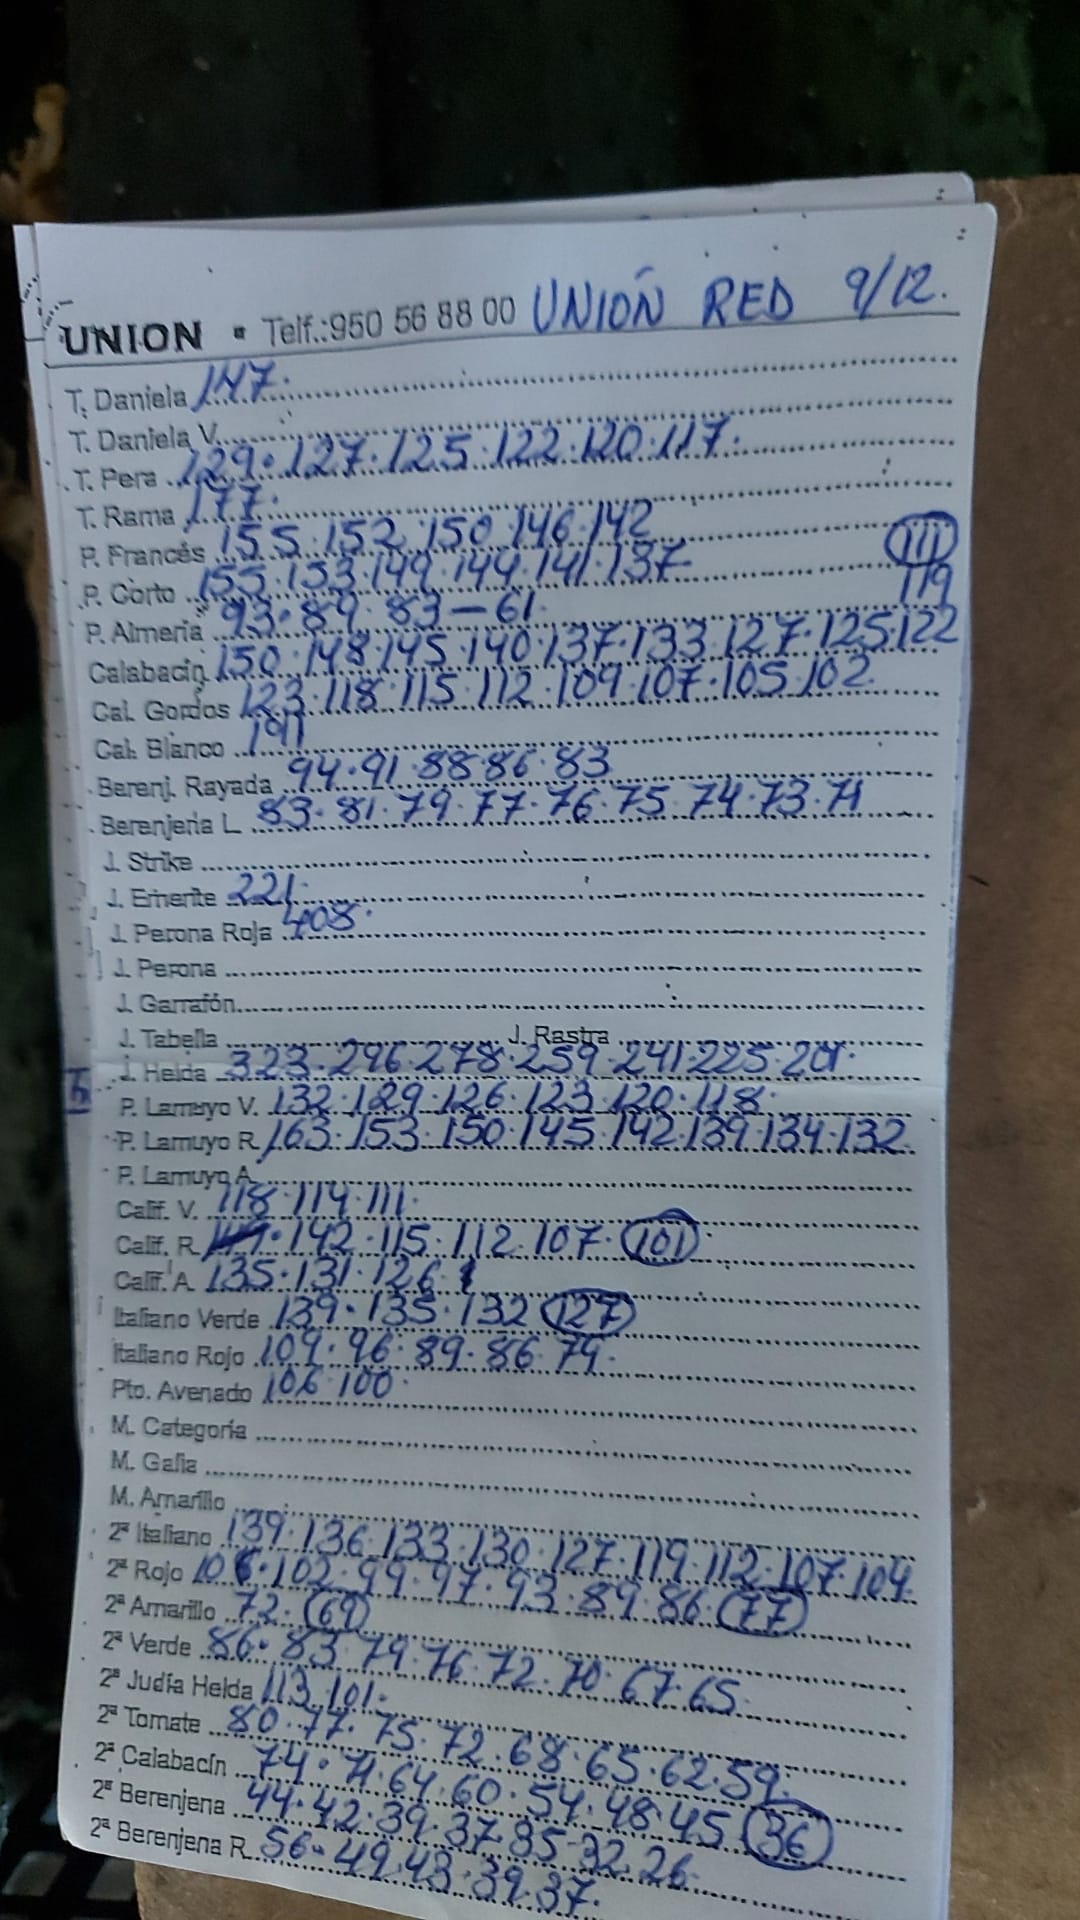 UNION ▪ Telf.:950 56 88 00 UNIÓN RED 9/12.
T. Daniela 147.
T. Daniela V.
T. Pera 129. 127. 125. 122. 120. 117.
T. Rama 177.
P. Francés 155. 152. 150. 146. 142
P. Corto 155. 153. 149. 144. 141. 137 111
P. Almería 93. 89. 83 — 61. 119
Calabacín 150. 148. 145. 140. 137. 133. 127. 125. 122
Cal. Gordos 123. 118. 115. 112. 109. 107. 105. 102.
Cal. Blanco
Berenj. Rayada 94. 91. 88. 86. 83
Berenjena L 83. 81. 79. 77. 76. 75. 74. 73. 71
J. Strike
J. Emerite 221.
J. Perona Roja 408.
J. Perona
J. Garrafón
J. Tabella J. Rastra
J. Helda 323. 296. 278. 259. 241. 225. 201.
P. Lamuyo V. 132. 129. 126. 123. 120. 118.
P. Lamuyo R. 163. 153. 150. 145. 142. 139. 134. 132.
P. Lamuyo A.
Calif. V. 118. 114. 111.
Calif. R. 142. 115. 112. 107. 101.
Calif. A. 135. 131. 126.
Italiano Verde 139. 135. 132 127
Italiano Rojo 109. 96. 89. 86. 79.
Pto. Avenado 106. 100.
M. Categoría
M. Galia
M. Amarillo
2ª Italiano 139. 136. 133. 130. 127. 119. 112. 107. 104.
2ª Rojo 106. 102. 99. 97. 93. 89. 86. 77
2ª Amarillo 72. 69
2ª Verde 86. 83. 79. 76. 72. 70. 67. 65.
2ª Judía Helda 113. 101.
2ª Tomate 80. 77. 75. 72. 68. 65. 62. 59.
2ª Calabacín 74. 71. 64. 60. 54. 48. 45 36
2ª Berenjena 44. 42. 39. 37. 35. 32. 26.
2ª Berenjena R. 56. 49. 43. 39. 37.